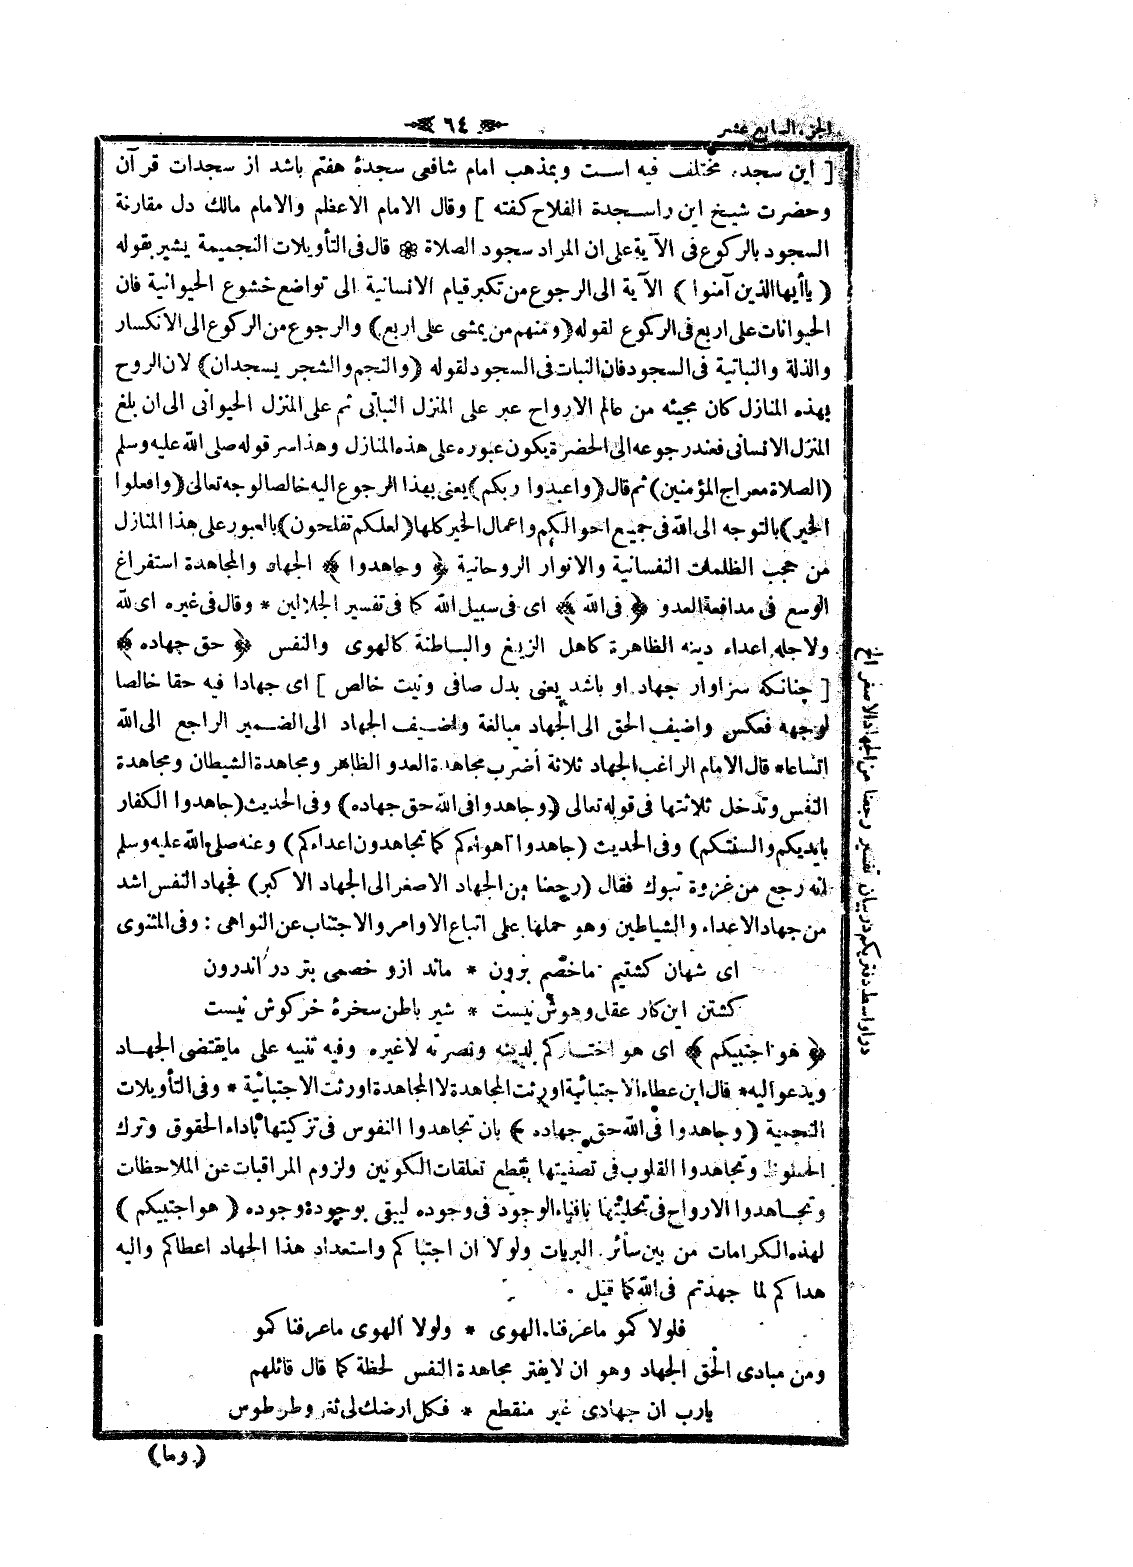 الجزء السابع عشر
٦٤
[ این سجده مختلف فیه است وبمذهب امام شافعی سجدهٔ هفتم باشد از سجدات قرآن
وحضرت شیخ این را سجدة الفلاح کفته ] وقال الامام الاعظم والامام مالك دل مقارنة
السجود بالركوع فى الآية على ان المراد سجود الصلاة ❁ قال فى التأويلات النجمية يشير بقوله
( ياأيها الذين آمنوا ) الآية الى الرجوع من تكبر قيام الانسانية الى تواضع خشوع الحيوانية فان
الحيوانات على اربع فى الركوع لقوله ( ومنهم من يمشى على اربع ) والرجوع من الركوع الى الانكسار
والذلة والنباتية فى السجود فان النبات فى السجود لقوله ( والنجم والشجر يسجدان ) لان الروح
بهذه المنازل كان مجيئه من عالم الارواح عبر على المنزل النباتى ثم على المنزل الحيوانى الى ان بلغ
المنزل الانسانى فعند رجوعه الى الحضرة يكون عبوره على هذه المنازل وهذا سر قوله صلى الله عليه وسلم
( الصلاة معراج المؤمنين ) ثم قال ( واعبدوا ربكم ) يعنى بهذا الرجوع اليه خالصا لوجه تعالى ( وافعلوا
الخير ) بالتوجه الى الله فى جميع احوالكم واعمال الخير كلها ( لعلكم تفلحون ) بالعبور على هذا المنازل
من حجب الظلمات النفسانية والانوار الروحانية ﴿ وجاهدوا ﴾ الجهاد والمجاهدة استفراغ
الوسع فى مدافعة العدو ﴿ فى الله ﴾ اى فى سبيل الله كما فى تفسير الجلالين * وقال فى غيره اى لله
ولاجله اعداء دينه الظاهرة كاهل الزيغ والباطنة كالهوى والنفس ﴿ حق جهاده ﴾
[ چنانکه سزاوار جهاد او باشد یعنی بدل صافی ونیت خالص ] اى جهادا فيه حقا خالصا
لوجهه فعكس واضيف الحق الى الجهاد مبالغة واضيف الجهاد الى الضمير الراجع الى الله
اتساعا * قال الامام الراغب الجهاد ثلاثة أضرب مجاهدة العدو الظاهر ومجاهدة الشيطان ومجاهدة
النفس وتدخل ثلاثتها فى قوله تعالى ( وجاهدوا فى الله حق جهاده ) وفى الحديث ( جاهدوا الكفار
بايديكم والسنتكم ) وفى الحديث ( جاهدوا اهواءكم كما تجاهدون اعداءكم ) وعنه صلى الله عليه وسلم
انه رجع من غزوة تبوك فقال ( رجعنا من الجهاد الاصغر الى الجهاد الاكبر ) فجهاد النفس اشد
من جهاد الاعداء والشياطين وهو حملها على اتباع الاوامر والاجتناب عن النواهى : وفى المثنوى
اى شهان کشتیم ماخصم برون * ماند ازو خصمی بتر در اندرون
کشتن این کار عقل وهوش نیست * شیر باطن سخرهٔ خرکوش نیست
﴿ هو اجتبيكم ﴾ اى هو اختاركم لدينه ونصرته لاغيره وفيه تنبيه على مايقتضى الجهاد
ويدعو اليه * قال ابن عطاء الاجتبائية اورثت المجاهدة لا المجاهدة اورثت الاجتبائية * وفى التأويلات
النجمية ( وجاهدوا فى الله حق جهاده ) بان تجاهدوا النفوس فى تزكيتها باداء الحقوق وترك
الحظوظ وتجاهدوا القلوب فى تصفيتها بقطع تعلقات الكونين ولزوم المراقبات عن الملاحظات
وتجاهدوا الارواح فى تحليتها بافناء الوجود فى وجوده ليبقى بوجوده وجوده ( هو اجتبيكم )
لهذه الكرامات من بين سائر البريات ولولا ان اجتباكم واستعداد هذا الجهاد اعطاكم واليه
هداكم لما جهدتم فى الله كما قيل
فلولا كمو ماعرفنا الهوى * ولولا الهوى ماعرفنا كمو
ومن مبادى الحق الجهاد وهو ان لايفتر مجاهدة النفس لحظة كما قال قائلهم
يارب ان جهادى غير منقطع * فكل ارضك لى ثغر وطرطوس
( وما )
در اواسط دفتر یکم در بیان تفسیر رجعنا من الجهاد الاصغر الخ